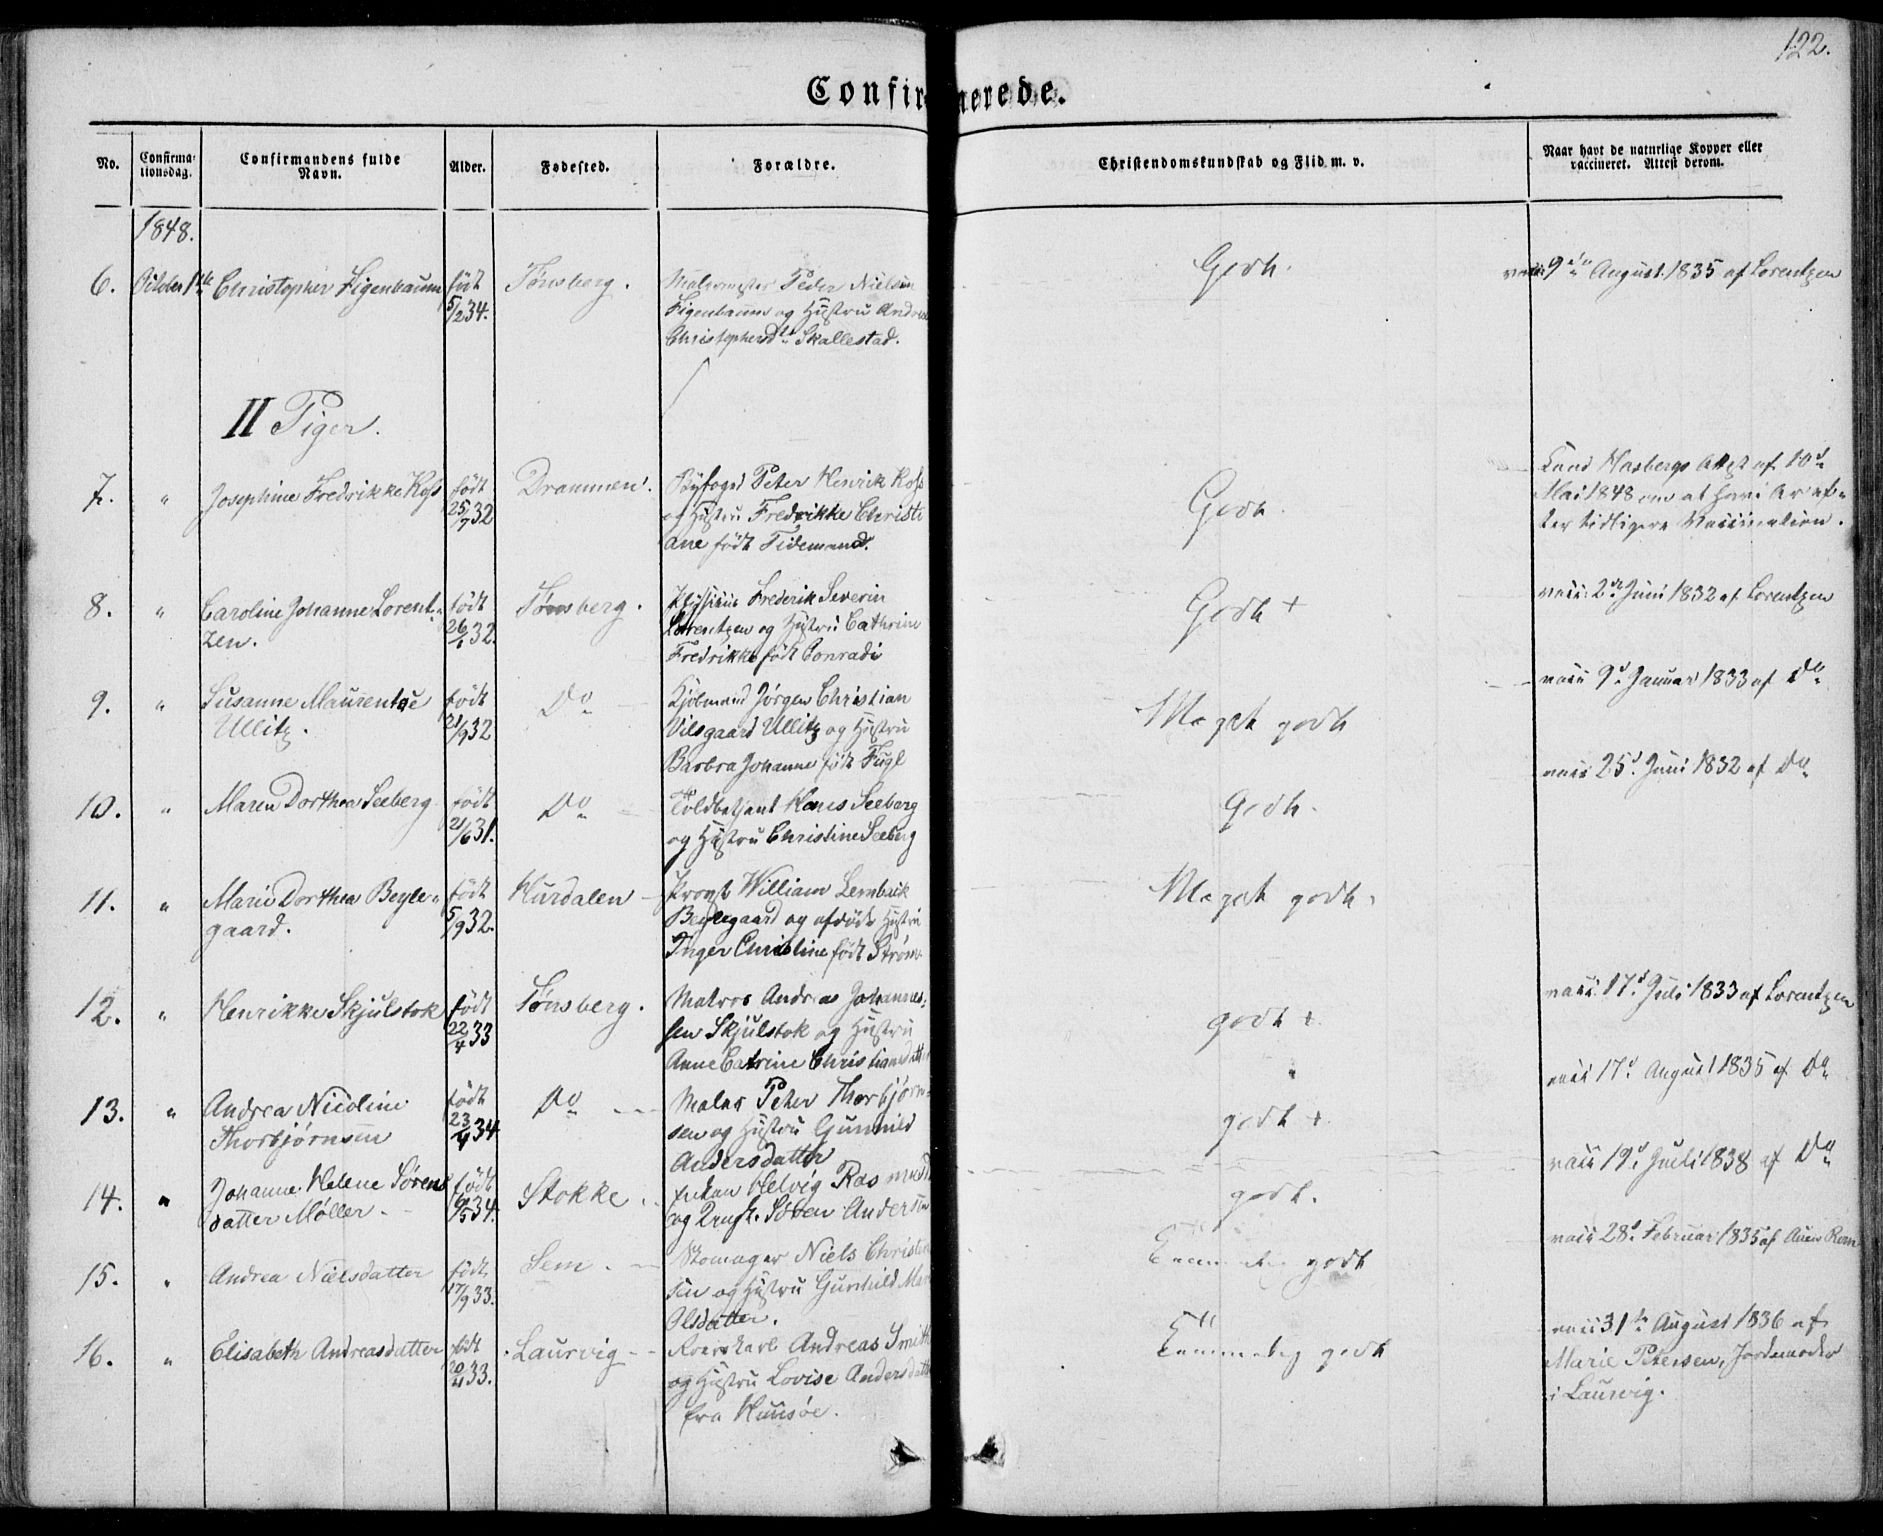 122.
Confirmerede.
No.
Confirma-
tionsdag.
Confirmandens fulde
Navn.
Alder.
Fødested.
Forældre.
Christendomskundskab og Flid m. v.
Naar havt de naturlige Kopper eller
vaccineret. Attest derom.
1848.
6. October 1ste Christopher Figenbaum født
5/2 34.
Tønsberg.
Malermester Peder Nielsen
Figenbaum og Hustru Andrea
Christophersdtr Skallestad.
Godt.
vacc. 9de August 1835 af Lorentzen
II Piger.
7. " Josephine Fredrikke Koss født
25/7 32
Drammen.
Byfoged Peter Henrik Koss
og Hustru Fredrikke Christi
ane født Tidemand.
Godt.
Attest af 10de
Mai 1848 om at have Ar ef-
ter tidligere Vaccination.
8. " Caroline Johanne Lorent-
zen.
født
26/1 32.
Tønsberg.
Frederik Severin
Lorentzen og Hustru Cathrine
Fredrikke født Conradi
Godt +
vacc. 2den Juni 1832 af Lorentzen
9. " Susanne Maurentze
Ullitz.
født
21/9 32
Do
Kjøbmand Jørgen Christian
Vilsgaard Ullitz og Hustru
Barbra Johanne født Fugl
Meget godt
vacc 9d Januar 1833 af Do
10. " Maren Dorthea Seeberg født
21/6 31.
Do
Toldbetjent Hans Seeberg
og Hustru Christine Seeberg
Godt.
vacc 25d Juni 1832 af Do
11. " Marie Dorthea Beyle-
gaard.
født
5/9 32.
Hurdalen
Provst William Lembrik
Beylegaard og afdøde Hustru
Inger Christine født Strøm
Meget godt.
12. " Henrikke Skjulstok født
22/4 33
Tønsberg.
Matros Andreas Johannes-
sen Skjulstok og Hustru
Anne Catrine Christiansdatter
godt +
vacc. 17d Juli 1833 af Lorentzen
13. " Andrea Nicoline
Thorbjørnsen
født
23/4 34
Do
Maler Peter Thorbjørn-
sen og Hustru Gunnild
Andersdatter
godt +
vacc 17d August 1835 af Do
14. " Johanne Helene Sørens
datter Møller
født
6/5 34.
Stokke
Enken Helvig Rasmusd
og Søren Andersen
godt.
vacc 19d Juli 1838 af Do
15. " Andrea Nielsdatter født
17/9 33.
Sem.
Skomager Niels Christen
sen og Hustru Gunhild Mar
Olsdatter.
godt
vacc 28d Februar 1835 af
16. " Elisabeth Andreasdatter født
20/4 33.
Laurvig
Andreas Smith
og Hustru Lovise Andersdatter
fra Huusøe.
godt
vacc 31te August 1836 af
Marie Petersen, Jordemoder
i Laurvig.